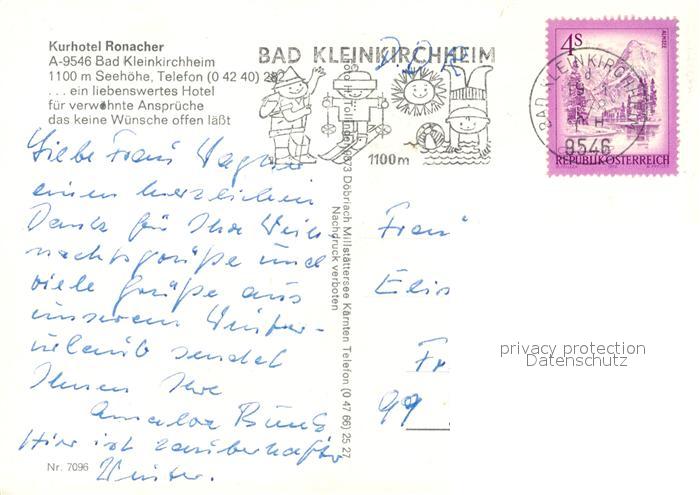 Kurhotel Ronacher
A-9546 Bad Kleinkirchheim
1100 m Seehöhe, Telefon (0 42 40) 282
... ein liebenswertes Hotel
für verwöhnte Ansprüche
das keine Wünsche offen läßt
BAD KLEINKIRCHHEIM
1100m
BAD KLEINKIRCHHEIM
9546
4S
ALMSEE
REPUBLIK ÖSTERREICH
Liebe Frau Wagner
einen herzlichen
Dank für Ihre Weih
nachtsgrüße und
viele Grüße aus
unserem Winter-
urlaub sendet
Ihnen Ihre
Hier ist zauberhafter
Winter.
Döbriach Millstättersee Kärnten Telefon (0 47 66) 25 27
Nachdruck verboten
Frau
Elis
Fr
99
privacy protection
Datenschutz
Nr. 7096